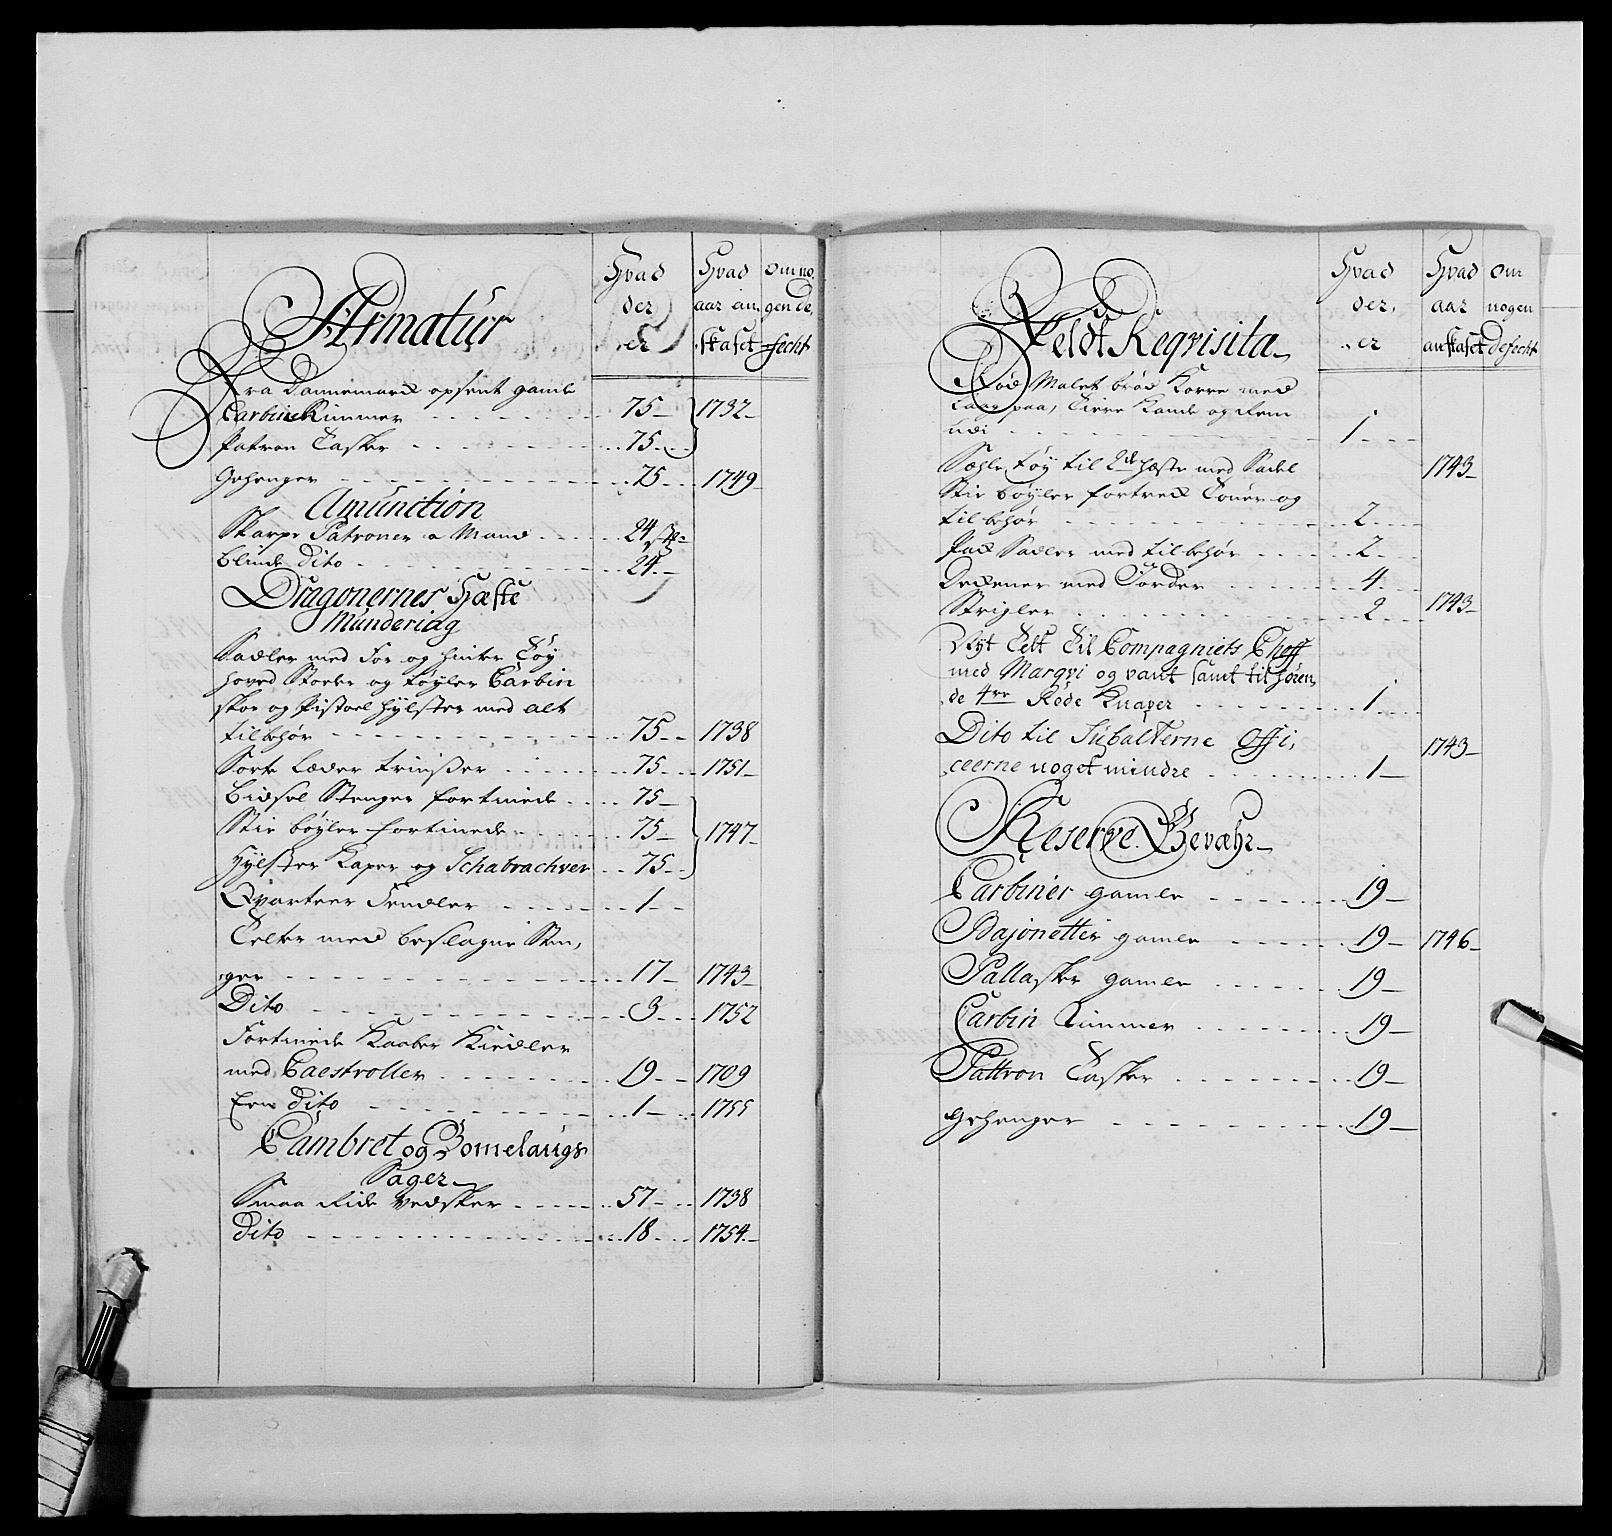 Armatur
Hvad der er
Hvad aar an, skafet
Om no, gen de, fecht
Fra Dannemarck opsent gamle
Carbin Rimmer 75 1732
Patron Tasker 75
Gehenger 75 1749
Amunition
Skarpe Patroner a Mand 24 st
blinde Dito 24
Dragonernes Hæste
Mundering
Sadler med For og hinter Tøy
hoved Stoeler og tøyler Carbin
skoe og Pistoel hylster med alt
tilbehør 75 1738
Sorte læder trinser 75 1751
bidsel Stenger fortinede 75
Stie bøyler fortinede 75 1747
Hylster Kaper og Schabrachver 75
Qvarteer Fendler 1
Telter med beslagne Sten,
ger 17 1743
Dito 3 1752
Fortinede Kaaber Kiedler
med Caestroller 19 1709
Een Dito 1 1755
Cambret og Bomelaugs
Sager
Smaa Ride Vedsker 57 1738
Dito 18 1754
Feldt Reqvisita
Hvad der, er
Hvad aar anskafet
Om nogen defecht
Rød Malet brød Korre med
Laag paa, Tiere Kande og Rem
udi 1
Sæhle tøy til 2de hæste med Sadel 1743
Stie bøyler fortreck Touer og
tilbehør 2
Pack Sadler med tilbehør 2
Deckener med Jorder 4
Strigler 2 1743
Nyt Telt Til Compagniets Cheff
med Marqvi og vant samt tilhøren,
de 4re Røde Knaper 1
Dito til Subalterne Offi, 1743
ceerne noget mindre 1
Reserve Bevæhr
Carbiner gamle 19
Bajonetter gamle 19 1746
Pallasker gamle 19
Carbin Rimmer 19
Pattron Tasker 19
Gehenger 19